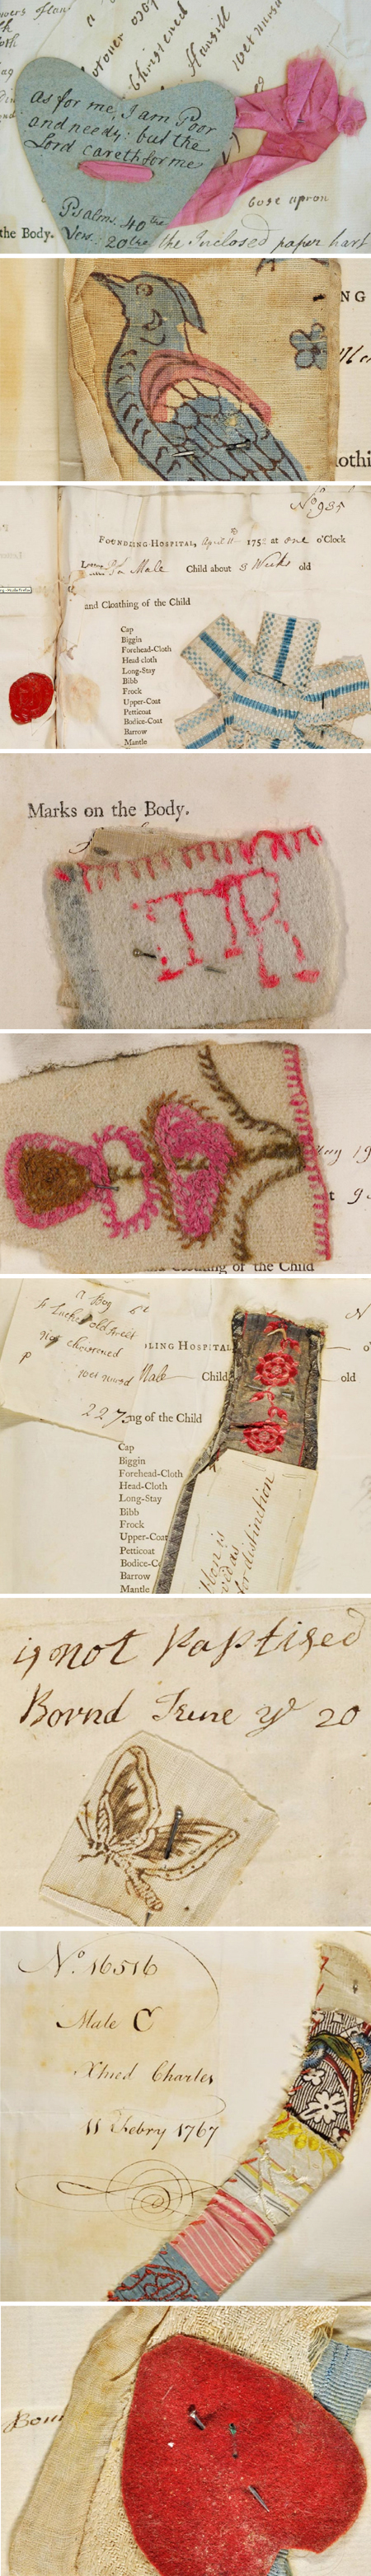 Christened
Hansill
wet nursed
As for me, I am Poor
and needy: but the
Lord careth for me
Psalms. 40 the
Vers: 20 the
the Inclosed paper hart
the Body.
NG
othi
No 935
FOUNDLING-HOSPITAL, April 11th 175 at one o'Clock
Male Child about 3 Weeks old
and Cloathing of the Child
Cap
Biggin
Forehead-Cloth
Head-cloth
Long-Stay
Bibb
Frock
Upper-Coat
Petticoat
Bodice-Coat
Barrow
Mantle
Marks on the Body.
TR
Cloathing of the Child
a Boy
old street
not christened
wet nursed
2275
LING HOSPITAL
Male Child old
ng of the Child
Cap
Biggin
Forehead-Cloth
Head-Cloth
Long-Stay
Bibb
Frock
Upper-Coat
Petticoat
Bodice-Co
Barrow
Mantle
for distinction
is not Paptised
Bornd June ye 20
No. 16516
Male C
Xtned Charles
11 Febry 1767